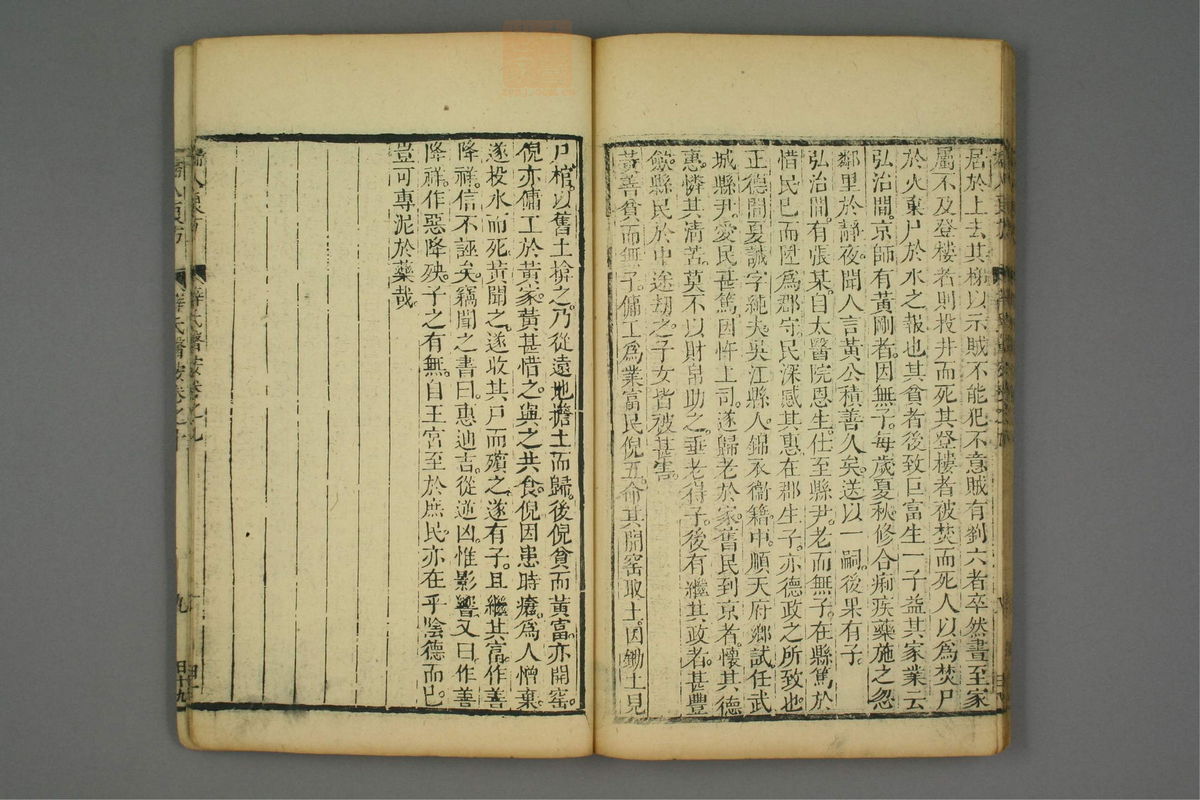 居於上去其梯以示賊不能犯不意賊有劉六者卒然晝至家
屬不及登樓者則投井而死其登樓者被焚而死人以爲焚尸
於火棄尸於水之報也其貧者後致巨富生一子益其家業云
弘治間京師有黃剛者因無子每歲夏秋修合痢疾藥施之忽
鄰里於靜夜聞人言黃公積善久矣送以一嗣後果有子
弘治間有張某自太醫院恩生仕至縣尹老而無子在縣篤於
惜民已而陞爲郡守民深感其惠在郡生子亦德政之所致也
正德間夏誠字純夫吳江縣人錦衣衞籍中順天府鄉試任武
城縣尹愛民甚篤因忤上司遂歸老於家舊民到京者懷其德
惠憐其清苦莫不以財帛助之垂老得子後有繼其政者甚豐
歛縣民於中途刼之子女皆被其害
黃善貧而無子傭工爲業富民倪五命其開窑取土因鋤土見
尸棺以舊土揜之乃從遠地擔土而歸後倪貧而黃富亦開窑
倪亦傭工於黃家黃甚惜之與之共食倪因患時瘡爲人憎棄
遂投水而死黃聞之遂收其尸而殯之遂有子且繼其富作善
降祥信不誣矣竊聞之書曰惠迪吉從逆凶惟影響又曰作善
降祥作惡降殃子之有無自王宮至於庶民亦在乎陰德而已
豈可專泥於藥哉
薛氏醫按卷之九
九